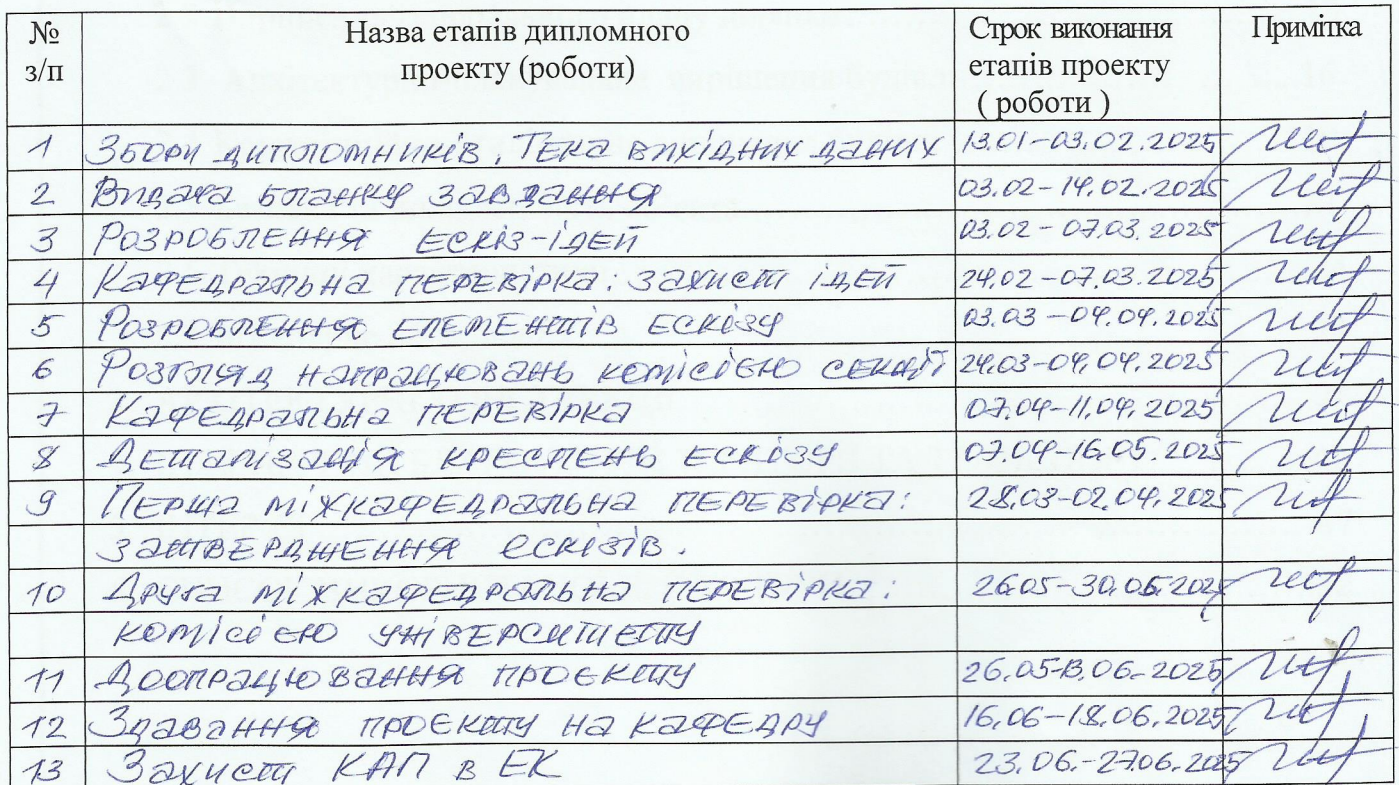 № з/п Назва етапів дипломного проекту (роботи) Строк виконання етапів проекту ( роботи ) Примітка
1 Збори дипломників. Тека вихідних даних 13.01-03.02.2025
2 Видача бланку завдання 03.02-14.02.2025
3 Розроблення ескіз-ідей 03.02-07.03.2025
4 Кафедральна перевірка: захист ідей 24.02-07.03.2025
5 Розроблення елементів ескізу 03.03-04.04.2025
6 Розгляд напрацювань комісією секції 24.03-04.04.2025
7 Кафедральна перевірка 07.04-11.04.2025
8 Деталізація креслень ескізу 07.04-16.05.2025
9 Перша міжкафедральна перевірка: 28.03-02.04.2025
затвердження ескізів.
10 Друга міжкафедральна перевірка: 26.05-30.05.2025
комісією університету
11 Доопрацювання проєкту 26.05-13.06.2025
12 Здавання проєкту на кафедру 16.06-18.06.2025
13 Захист КАП в ЕК 23.06.-27.06.2025